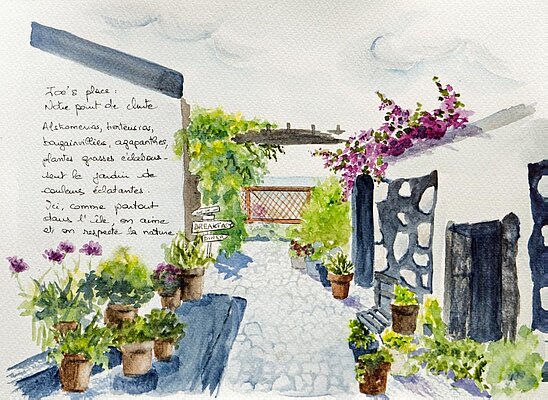 Zoe's place :
Notre point de chute
Alstromerias, hortensias,
bougainvillées, agapanthes,
plantes grasses éclabous-
sent le jardin de
couleurs éclatantes.
Ici, comme partout
dans l'île, on aime
et on respecte la nature
BREAKFAST